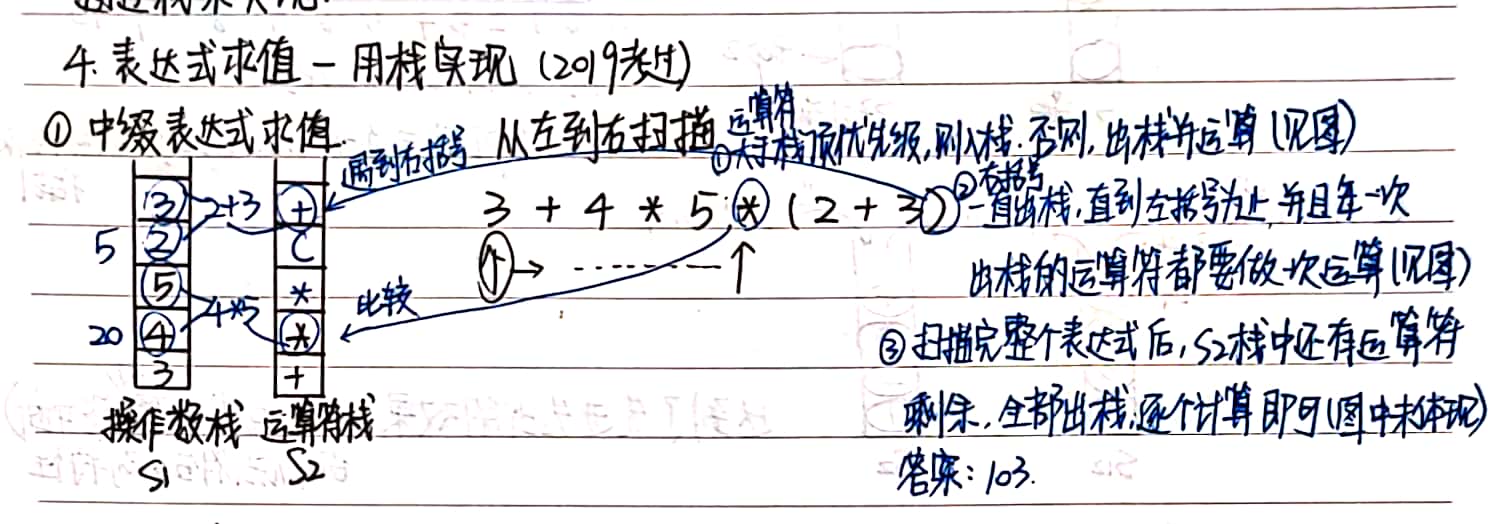 4. 表达式求值 — 用栈实现 (2019考过)
① 中缀表达式求值. 从左到右扫描
运算符
①大于栈顶优先级,则入栈.否则,出栈并运算(见图)
遇到右括号
3 + 4 * 5 * ( 2 + 3 )
②右括号
一直出栈,直到左括号为止,并且每一次
出栈的运算符都要做一次运算(见图)
③扫描完整个表达式后,S2栈中还有运算符
剩余,全部出栈,逐个计算即可(图中未体现)
答案: 103.
3 2+3 +
5 2 (
5 *
比较
4*5
20 4 *
3 +
操作数栈 运算符栈
S1 S2